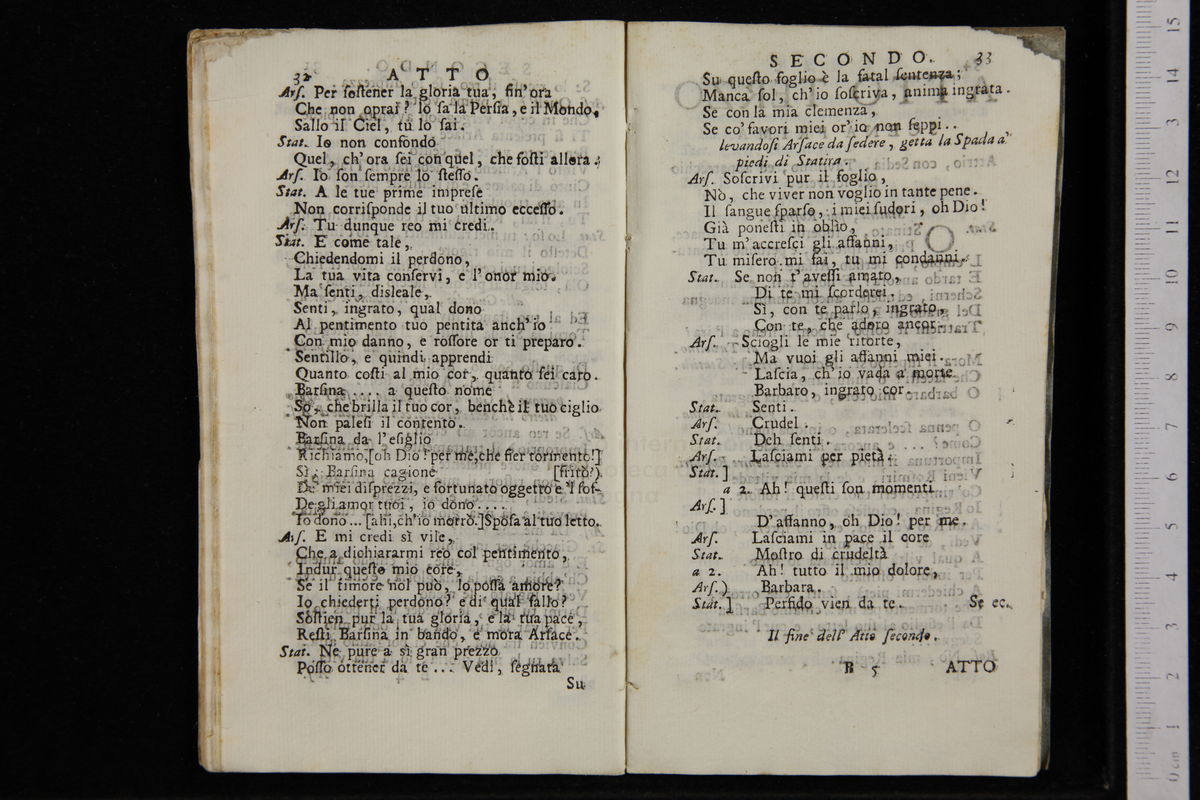 32 ATTO
Arſ. Per ſoſtener la gloria tua, fin'ora
Che non oprai? lo ſa la Perſia, e il Mondo,
Sallo il Ciel, tu lo ſai.
Stat. Io non confondo
Quel, ch'ora ſei con quel, che foſti allora:
Arſ. Io ſon ſempre lo ſteſſo.
Stat. A le tue prime impreſe
Non corriſponde il tuo ultimo ecceſſo.
Arſ. Tu dunque reo mi credi.
Stat. E come tale,
Chiedendomi il perdono,
La tua vita conſervi, e l'onor mio.
Ma ſenti, disleale,
Senti, ingrato, qual dono
Al pentimento tuo pentita anch'io
Con mio danno, e roſſore or ti preparo.
Sentillo, e quindi apprendi
Quanto coſti al mio cor, quanto ſei caro.
Barſina .... a queſto nome
So, che brilla il tuo cor, benchè il tuo ciglio
Non paleſi il contento.
Barſina da l'eſiglio
Richiamo, [oh Dio! per me, che fier tormento!]
Sì; Barſina cagione [frito?)
De' miei diſprezzi, e fortunato oggetto e 'l ſof-
De gli amor tuoi, io dono....
Io dono... [ahi, ch'io morrò.] Spoſa al tuo letto.
Arſ. E mi credi sì vile,
Che a dichiararmi reo col pentimento,
Indur queſto mio core,
Se il timore nol può, lo poſſa amore?
Io chiederti perdono? e di qual fallo?
Soſtien pur la tua gloria, e la tua pace,
Reſti Barſina in bando, e mora Arſace.
Stat. Ne pure a sì gran prezzo
Poſſo ottener da te ... Vedi, ſegnata
Su
SECONDO. 33
Su queſto foglio è la fatal ſentenza;
Manca ſol, ch'io ſoſcriva, anima ingrata.
Se con la mia clemenza,
Se co' favori miei or'io non ſeppi..
levandoſi Arſace da ſedere, getta la Spada a'
piedi di Statira.
Arſ. Soſcrivi pur il foglio,
Nò, che viver non voglio in tante pene.
Il ſangue ſparſo, i miei ſudori, oh Dio!
Già poneſti in oblio,
Tu m'accreſci gli affanni,
Tu miſero mi fai, tu mi condanni.
Stat. Se non t'aveſſi amato,
Di te mi ſcorderei.
Sì, con te parlo, ingrato,
Con te, che adoro ancor.
Arſ. Sciogli le mie ritorte,
Ma vuoi gli affanni miei.
Laſcia, ch'io vada a morte
Barbaro, ingrato cor.
Stat. Senti.
Arſ. Crudel.
Stat. Deh ſenti.
Arſ. Laſciami per pietà.
Stat. ]
a 2. Ah! queſti ſon momenti
Arſ. ]
D'affanno, oh Dio! per me.
Arſ. Laſciami in pace il core
Stat. Moſtro di crudeltà
a 2. Ah! tutto il mio dolore,
Arſ. ) Barbara.
Stat. ] Perfido vien da te. Se ec.
Il fine dell' Atto ſecondo.
B 5 ATTO